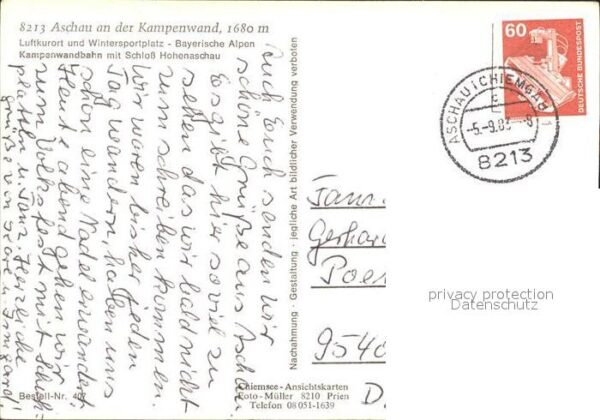 8213 Aschau an der Kampenwand, 1680 m
Luftkurort und Wintersportplatz - Bayerische Alpen
Kampenwandbahn mit Schloß Hohenaschau
Auch Euch senden wir
schöne Grüße aus Aschau
Es gibt hier so viel zu
sehen das wir bald nicht
zum schreiben kommen
wir waren bisher jeden
Tag wandern, haben uns
schon eine Nadel erwandert
Heute abend gehen wir
zum Volksfest mit Schuh-
plattln u. Tanz. Herzliche
Grüße von
Irmgard
Bestell-Nr. 40
Nachahmung - Gestaltung - jegliche Art bildlicher Verwendung verboten
Chiemsee-Ansichtskarten
Foto-Müller 8210 Prien
Telefon 08051-1639
60
DEUTSCHE BUNDESPOST
ASCHAU I. CHIEMGAU 1
c
-5.-9.83 - 8
8213
Fam.
Gerhar
Poe
9540
D
privacy protection
Datenschutz